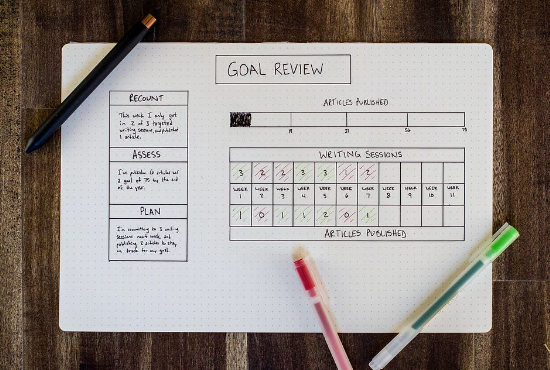 GOAL REVIEW
RECOUNT
This week I only got
in 2 of 3 targeted
writing sessions, and published
1 article.
ASSESS
of the year.
PLAN
I'm committing to 3 writing
sessions next week, and
publishing 2 articles to stay
on track for my goal.
ARTICLES PUBLISHED
75
WRITING SESSIONS
3 2 2 3 3 1 2
WEEK WEEK WEEK WEEK WEEK WEEK WEEK WEEK WEEK WEEK WEEK
1 2 3 4 5 6 7 8 9 10 11
1 0 1 1 2 0 1
ARTICLES PUBLISHED